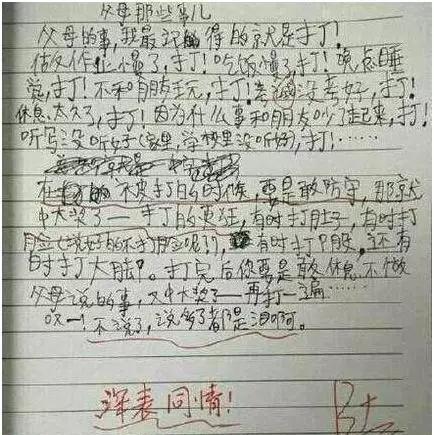 父母那些事儿
父母的事,我最记的得的就是打!
作业慢了,打!吃饭慢了,打!晚点睡
觉,打!不和朋友玩,打!考试没考好,打!
休息太久了,打!因为什么事和朋友吵了起来,打!
听写没听好(家里,学校里没听好),打!……
在 不皮打的时候,要是敢防守,那就
中大奖了——打的更狂,有时打肚子,有时打
脸(说好的不打脸呢?),有时打P股,还有
时打大腿。打完后你要是敢休息,不做
父母说的事,又中大奖了——再打一遍……
哎——!不说了,说多了都是泪啊。
深表同情!
B+